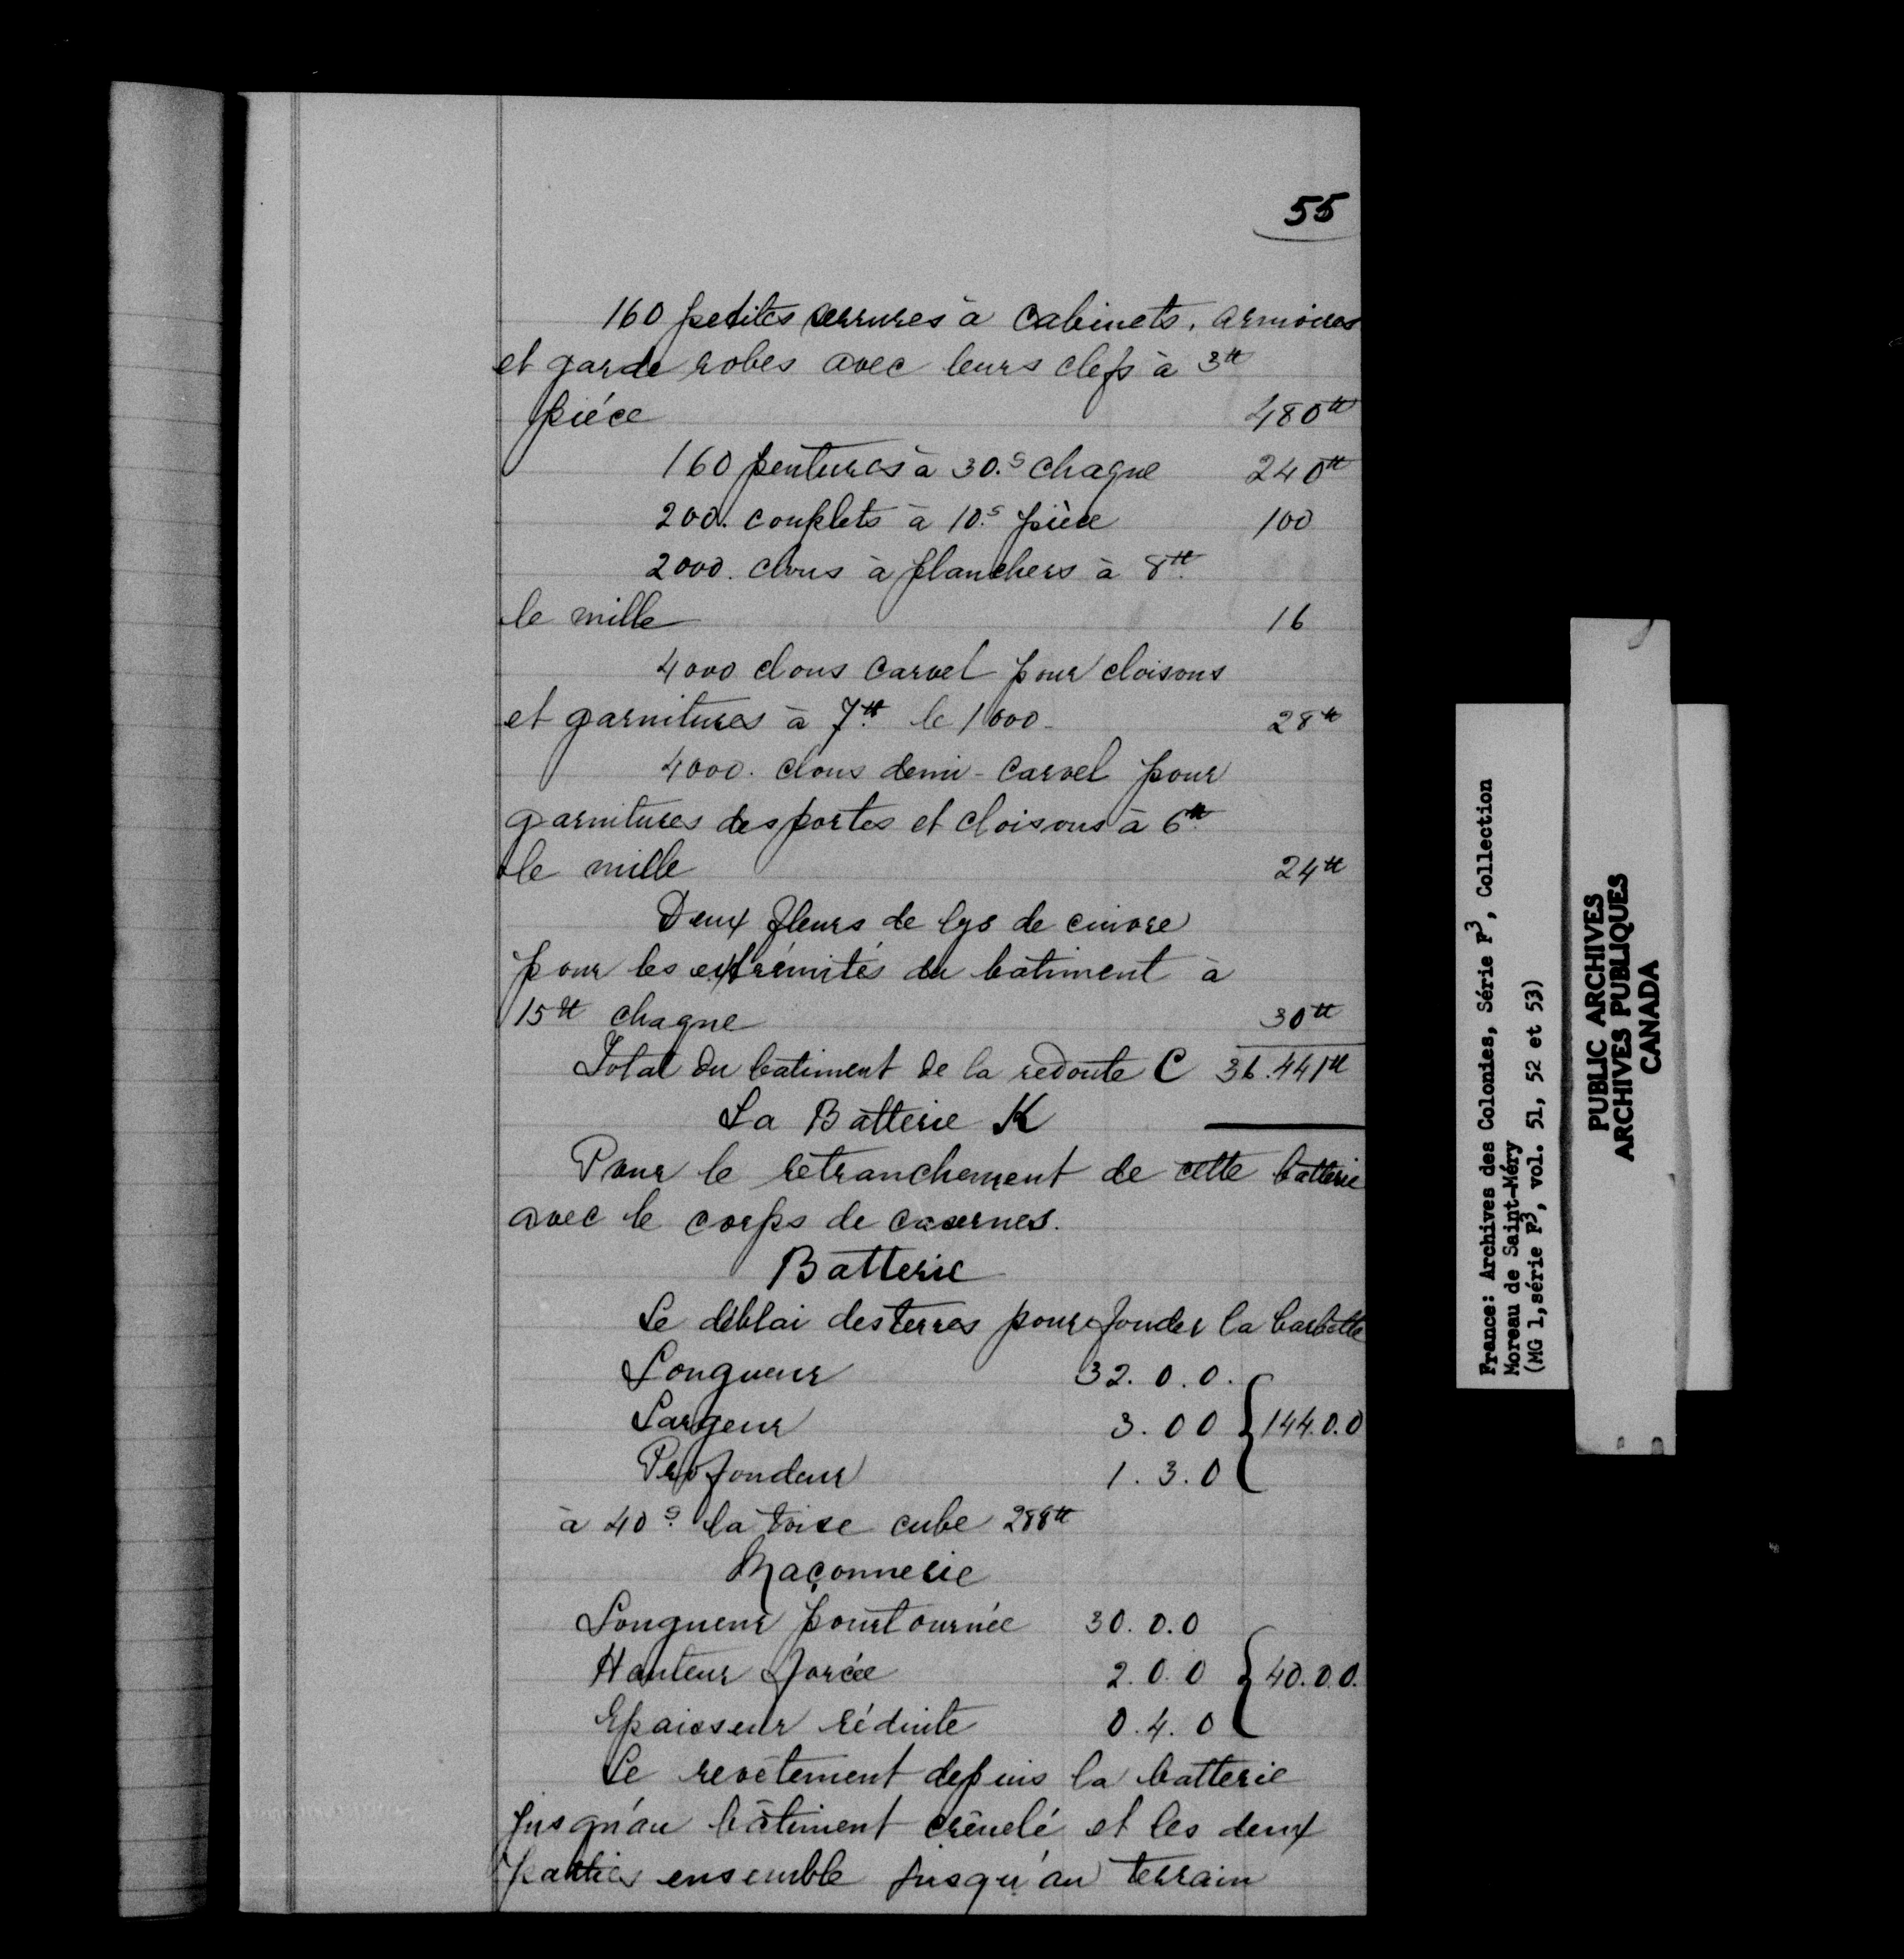 55
160 petites serrures à cabinets, armoires
et garde robes avec leurs clefs à 3tt
piéce 480tt
160 pentures à 30.s chaque 240tt
200. couplets à 10.s pièce 100
2000. clous à planchers à 8tt
le mille 16
4000 clous carvel pour cloisons
et garnitures à 7tt le 1000 - 28tt
4000. clous demi-carvel pour
garnitures des portes et cloisons à 6tt
le mille 24tt
Deux fleurs de lys de cuivre
pour les extrémités du bâtiment à
15tt chaque 30tt
Total du bâtiment de la redoute C 36.441tt
La Batterie K
Pour le retranchement de cette batterie
avec le corps de casernes.
Batterie
Le déblai des terres pour fonder la barbette
Longueur 32. 0. 0.
Largeur 3. 0 0 } 144.0.0
Profondeur 1. 3. 0
à 40s la toise cube 288tt
Maçonnerie
Longueur pourtournée 30. 0. 0
Hauteur forcée 2. 0. 0 } 40.0.0.
Epaisseur réduite 0. 4. 0
Le revêtement depuis la batterie
jusqu'au bâtiment crénelé et les deux
parties ensemble jusqu'au terrain
France: Archives des Colonies, Série F3, Collection
Moreau de Saint-Méry
(MG 1, série F3, vol. 51, 52 et 53)
PUBLIC ARCHIVES
ARCHIVES PUBLIQUES
CANADA